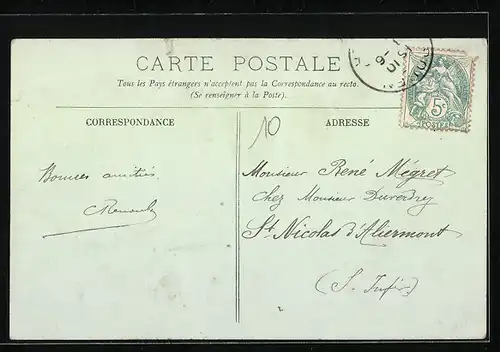 CARTE POSTALE
Tous les Pays étrangers n'acceptent pas la Correspondance au recto.
(Se renseigner à la Poste).
CORRESPONDANCE
ADRESSE
10
Bonnes amitiés
Monsieur René Mégret
chez Monsieur
St Nicolas d'Aliermont
(S. Infre)
5c
POSTES